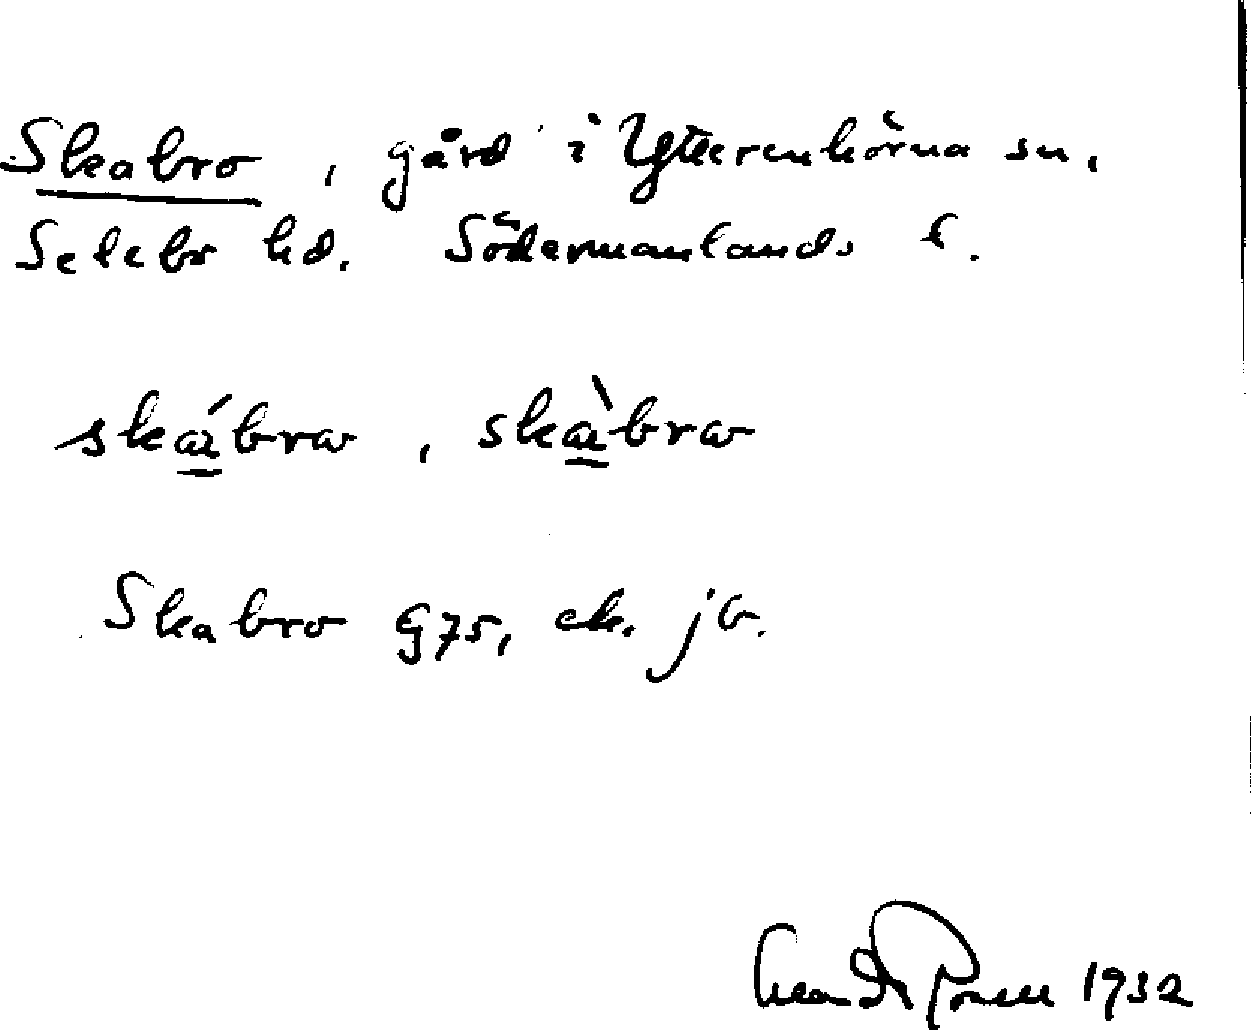 Skabro, gård i Ytterenhörna sn,
Selebo hd. Södermanlands l.
skábrω, skàbrω
Skabro G75, ek. jb.
1932